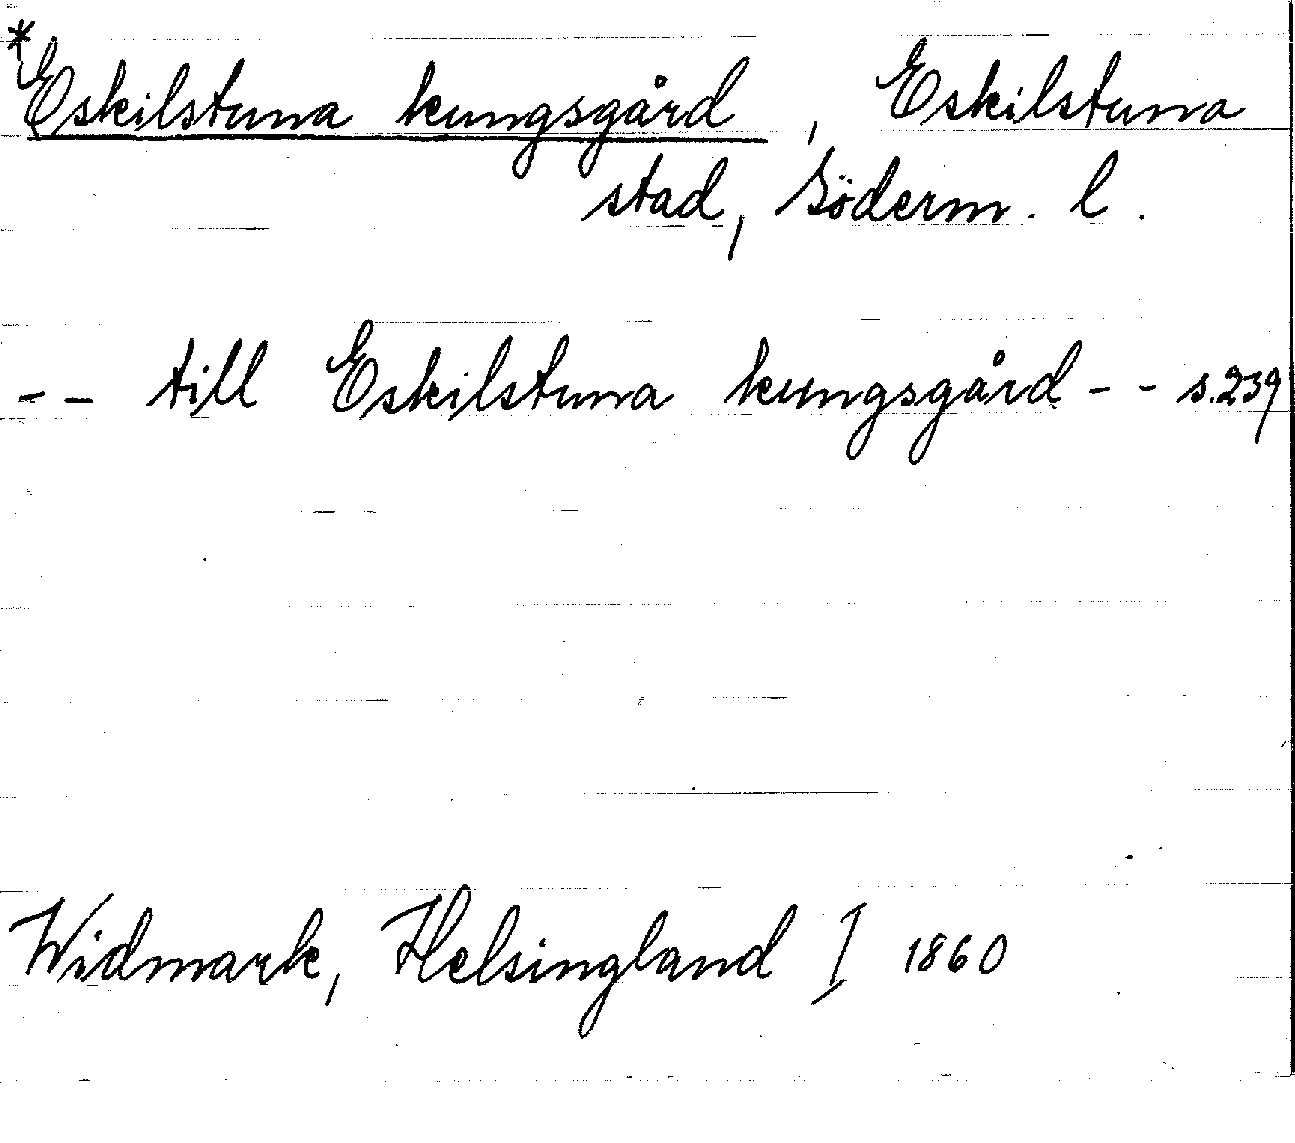 *Eskilstuna kungsgård, Eskilstuna
stad, Söderm. l.
-- till Eskilstuna kungsgård -- s.239
Widmark, Helsingland I 1860